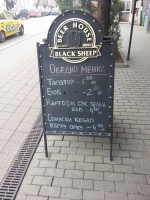 BEER HOUSE
BLACK SHEEP
ОБЕДНО МЕНЮ:
ТАРАТОР - 1.50
БОБ - 2.
КАРТОФИ СЪС ЗЕЛЕН
БОБ - 4.
КЕБАП
ВЪРХУ ОРИЗ - 4.50